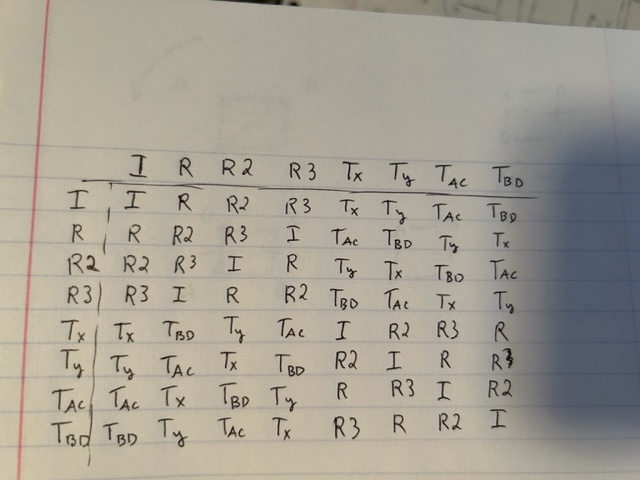 I R R2 R3 Tx Ty TAC TBD
I I R R2 R3 Tx Ty TAC TBD
R R R2 R3 I TAC TBD Ty Tx
R2 R2 R3 I R Ty Tx TBD TAC
R3 R3 I R R2 TBD TAC Tx Ty
Tx Tx TBD Ty TAC I R2 R3 R
Ty Ty TAC Tx TBD R2 I R R3
TAC TAC Tx TBD Ty R R3 I R2
TBD TBD Ty TAC Tx R3 R R2 I